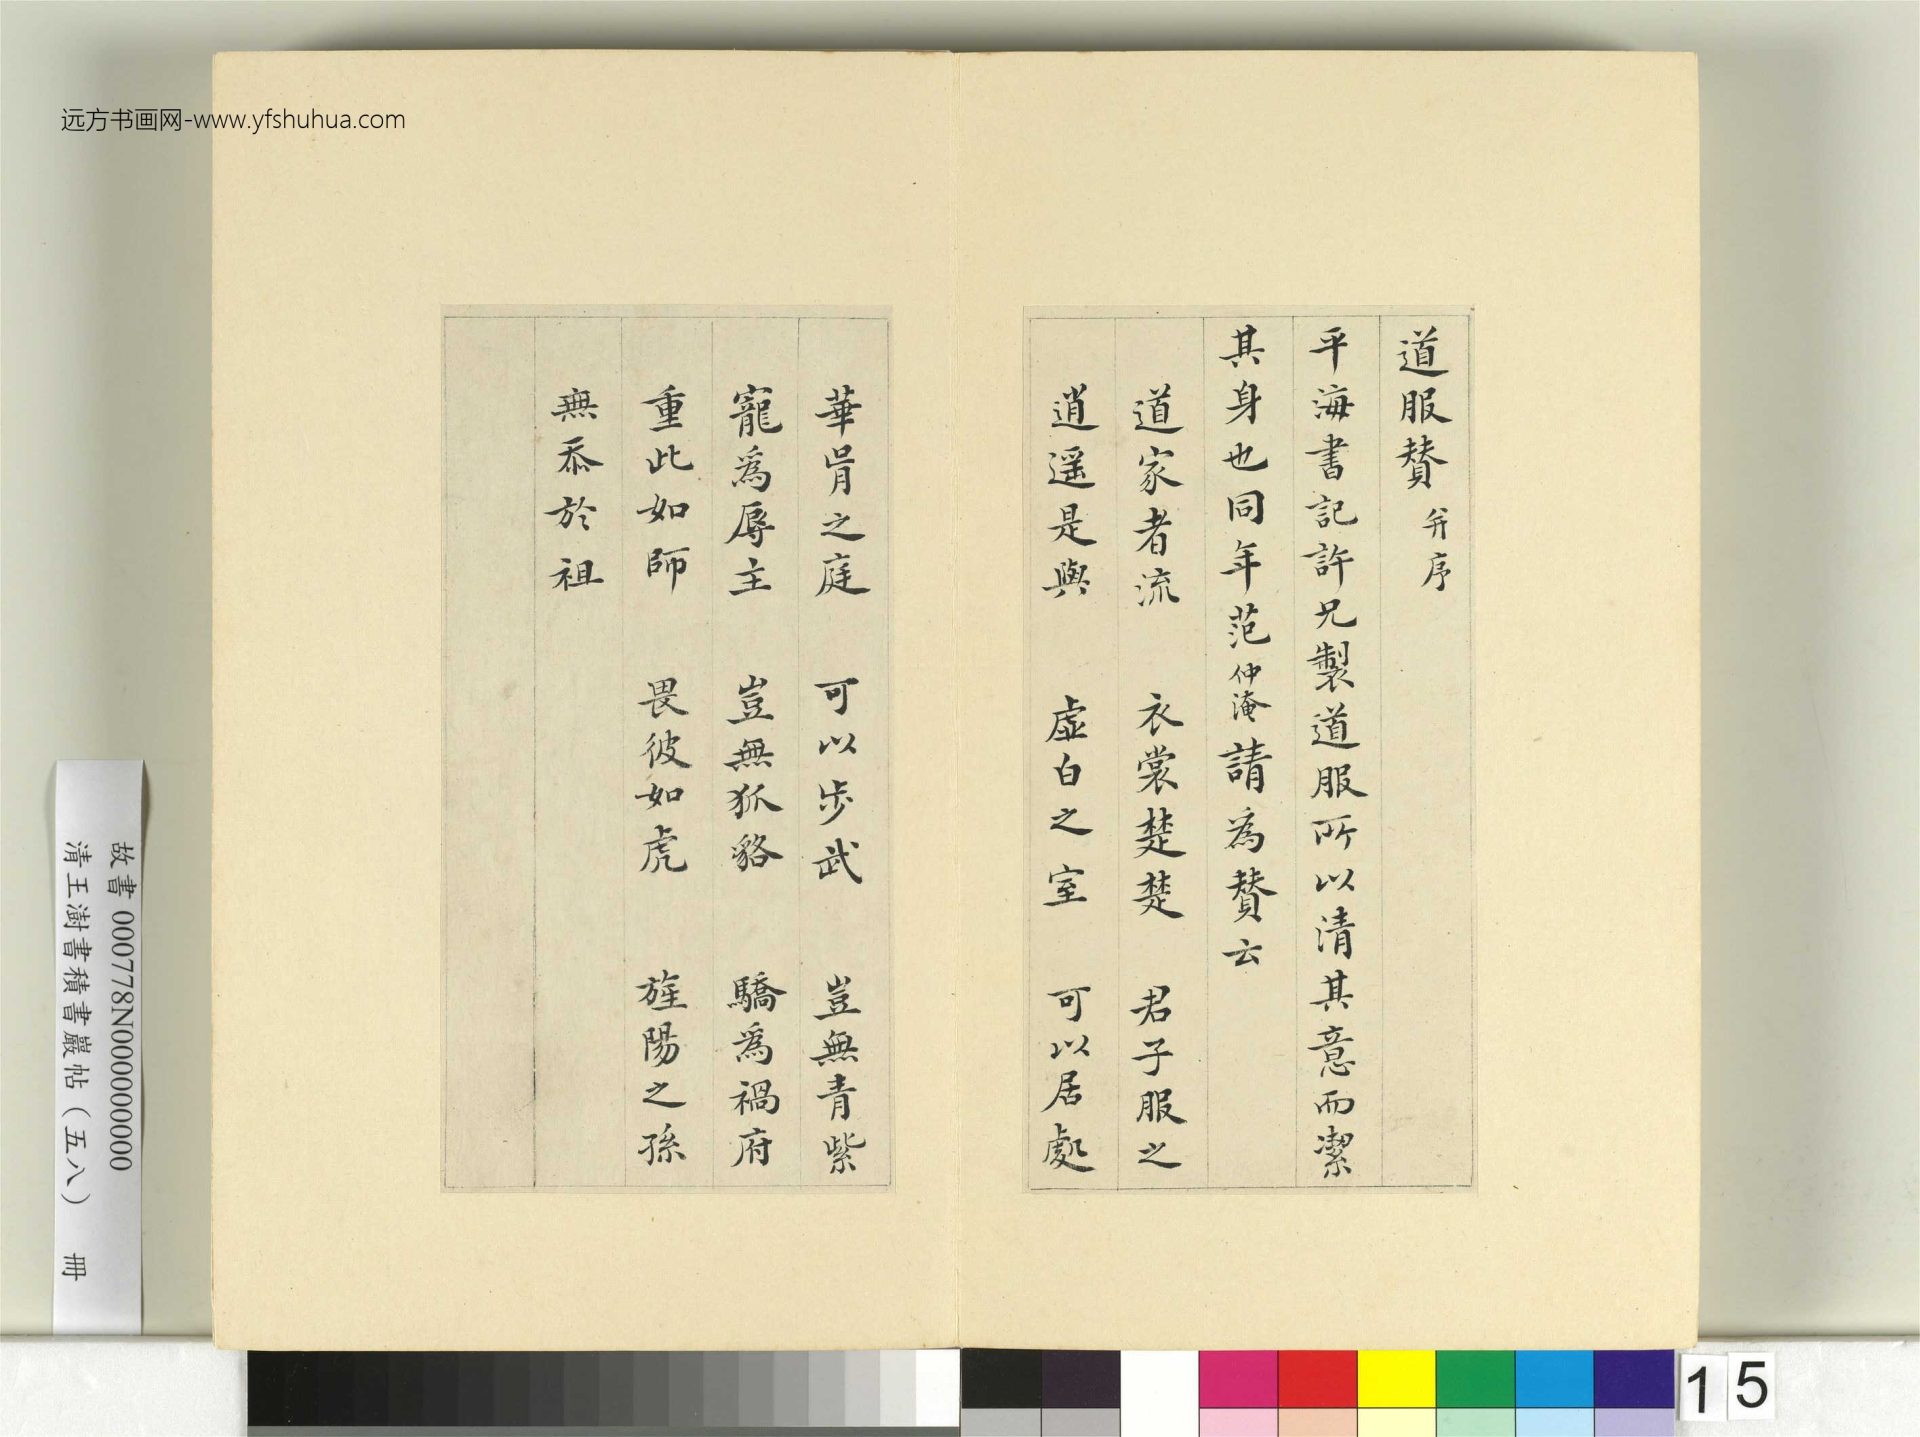 远方书画网-www.yfshuhua.com
道服贊 并序
平海書記許兄製道服所以清其意而潔
其身也同年范仲淹請為贊云
道家者流 衣裳楚楚 君子服之
逍遥是與 虛白之室 可以居處
華胥之庭 可以步武 豈無青紫
寵為辱主 豈無狐貉 驕為禍府
重此如師 畏彼如虎 旌陽之孫
無忝於祖
故書 000778N000000000
清王澍書積書巖帖（五八） 冊
15